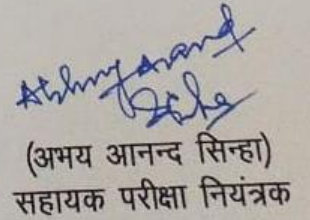 Abhay Anand
Sinha
(अभय आनन्द सिन्हा)
सहायक परीक्षा नियंत्रक